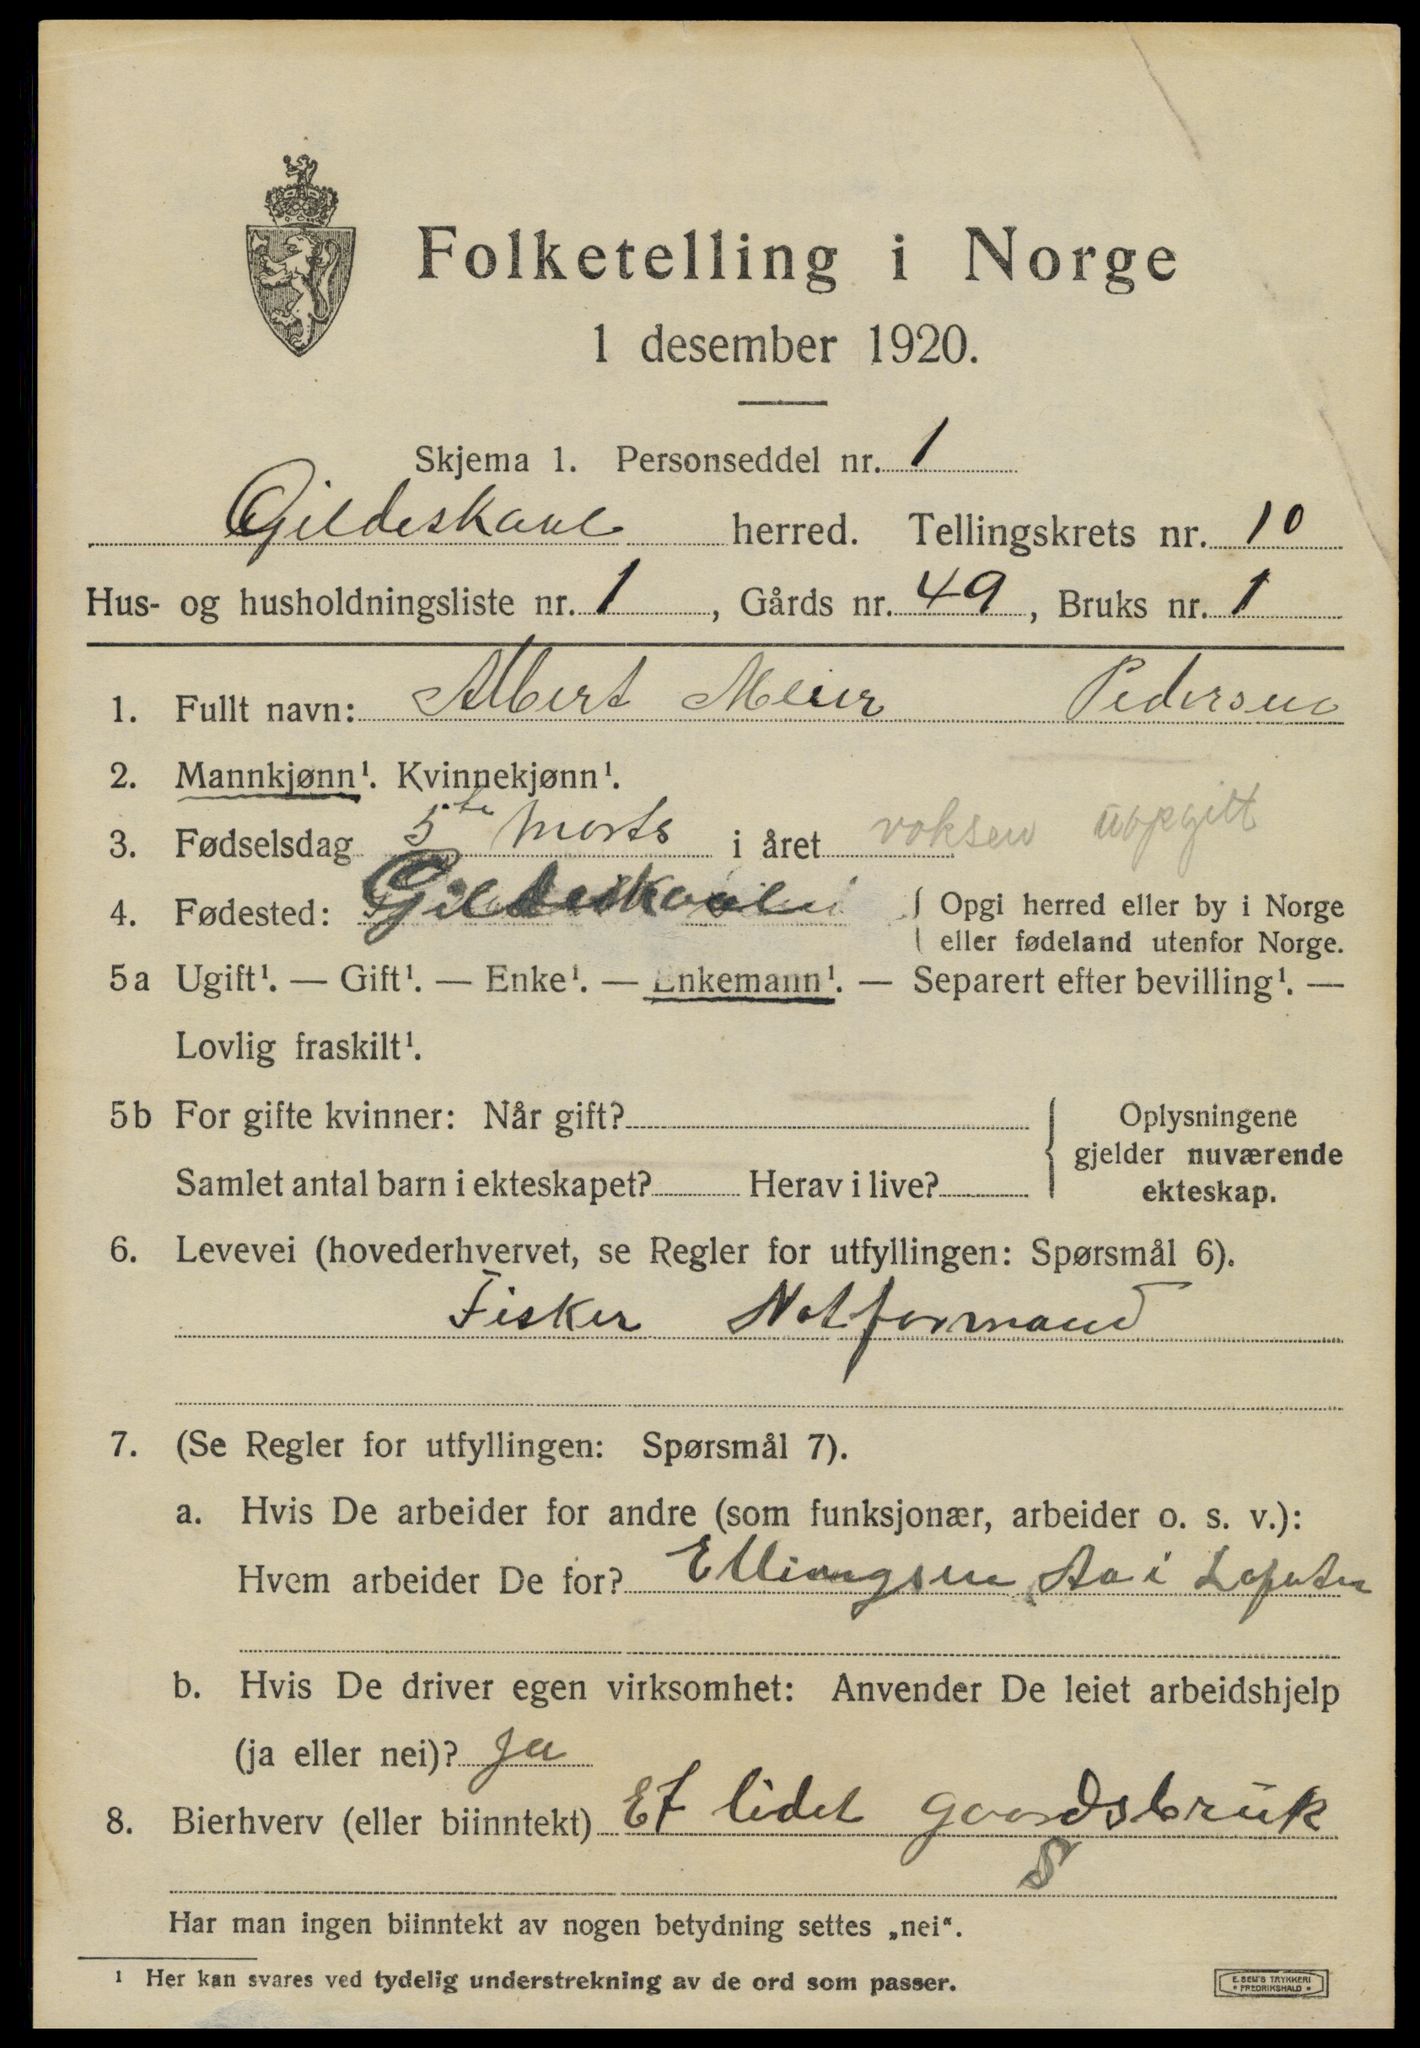 Folketelling i Norge
1 desember 1920.
Skjema 1. Personseddel nr. 1
Gildeskaal herred. Tellingskrets nr. 10
Hus- og husholdningsliste nr. 1, Gårds nr. 49, Bruks nr. 1
1. Fullt navn: Albert Meier Pedersen
2. Mannkjønn¹. Kvinnekjønn¹.
3. Fødselsdag 5te Marts i året voksen uopgitt
4. Fødested: Gildeskaal { Opgi herred eller by i Norge
eller fødeland utenfor Norge.
5a Ugift¹. — Gift¹. — Enke¹. — Enkemann¹. — Separert efter bevilling¹. —
Lovlig fraskilt¹.
5b For gifte kvinner: Når gift? { Oplysningene
gjelder nuværende
Samlet antal barn i ekteskapet? Herav i live? ekteskap.
6. Levevei (hovederhvervet, se Regler for utfyllingen: Spørsmål 6).
Fisker Notformand
7. (Se Regler for utfyllingen: Spørsmål 7).
a. Hvis De arbeider for andre (som funksjonær, arbeider o. s. v.):
Hvem arbeider De for? Ellingsen Aa i Lofoten
b. Hvis De driver egen virksomhet: Anvender De leiet arbeidshjelp
(ja eller nei)? Ja
8. Bierhverv (eller biinntekt) Et lidet gaardsbruk
S
Har man ingen biinntekt av nogen betydning settes „nei“.
¹ Her kan svares ved tydelig understrekning av de ord som passer.
E. SEM'S TRYKKERI
• FREDRIKSHALD •